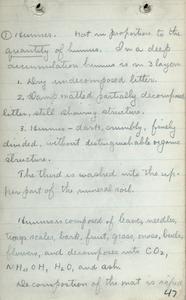 ① Humus. Not in proportion to the
quantity of humus. In a deep
accumulation humus is in 3 layers
1. Dry undecomposed litter.
2. Damp matted partially decomposed
litter, still showing structure.
3. Humus - dark, crumbly, finely
divided, without distinguishable organic
structure.
The third is washed into the up-
per part of the mineral soil.
Humus is composed of leaves, needles,
twigs, scales, bark, fruit, grass, moss, buds,
flowers, and decomposes into CO₂,
NH₄OH, H₂O, and ash.
Decomposition of the mat is
47